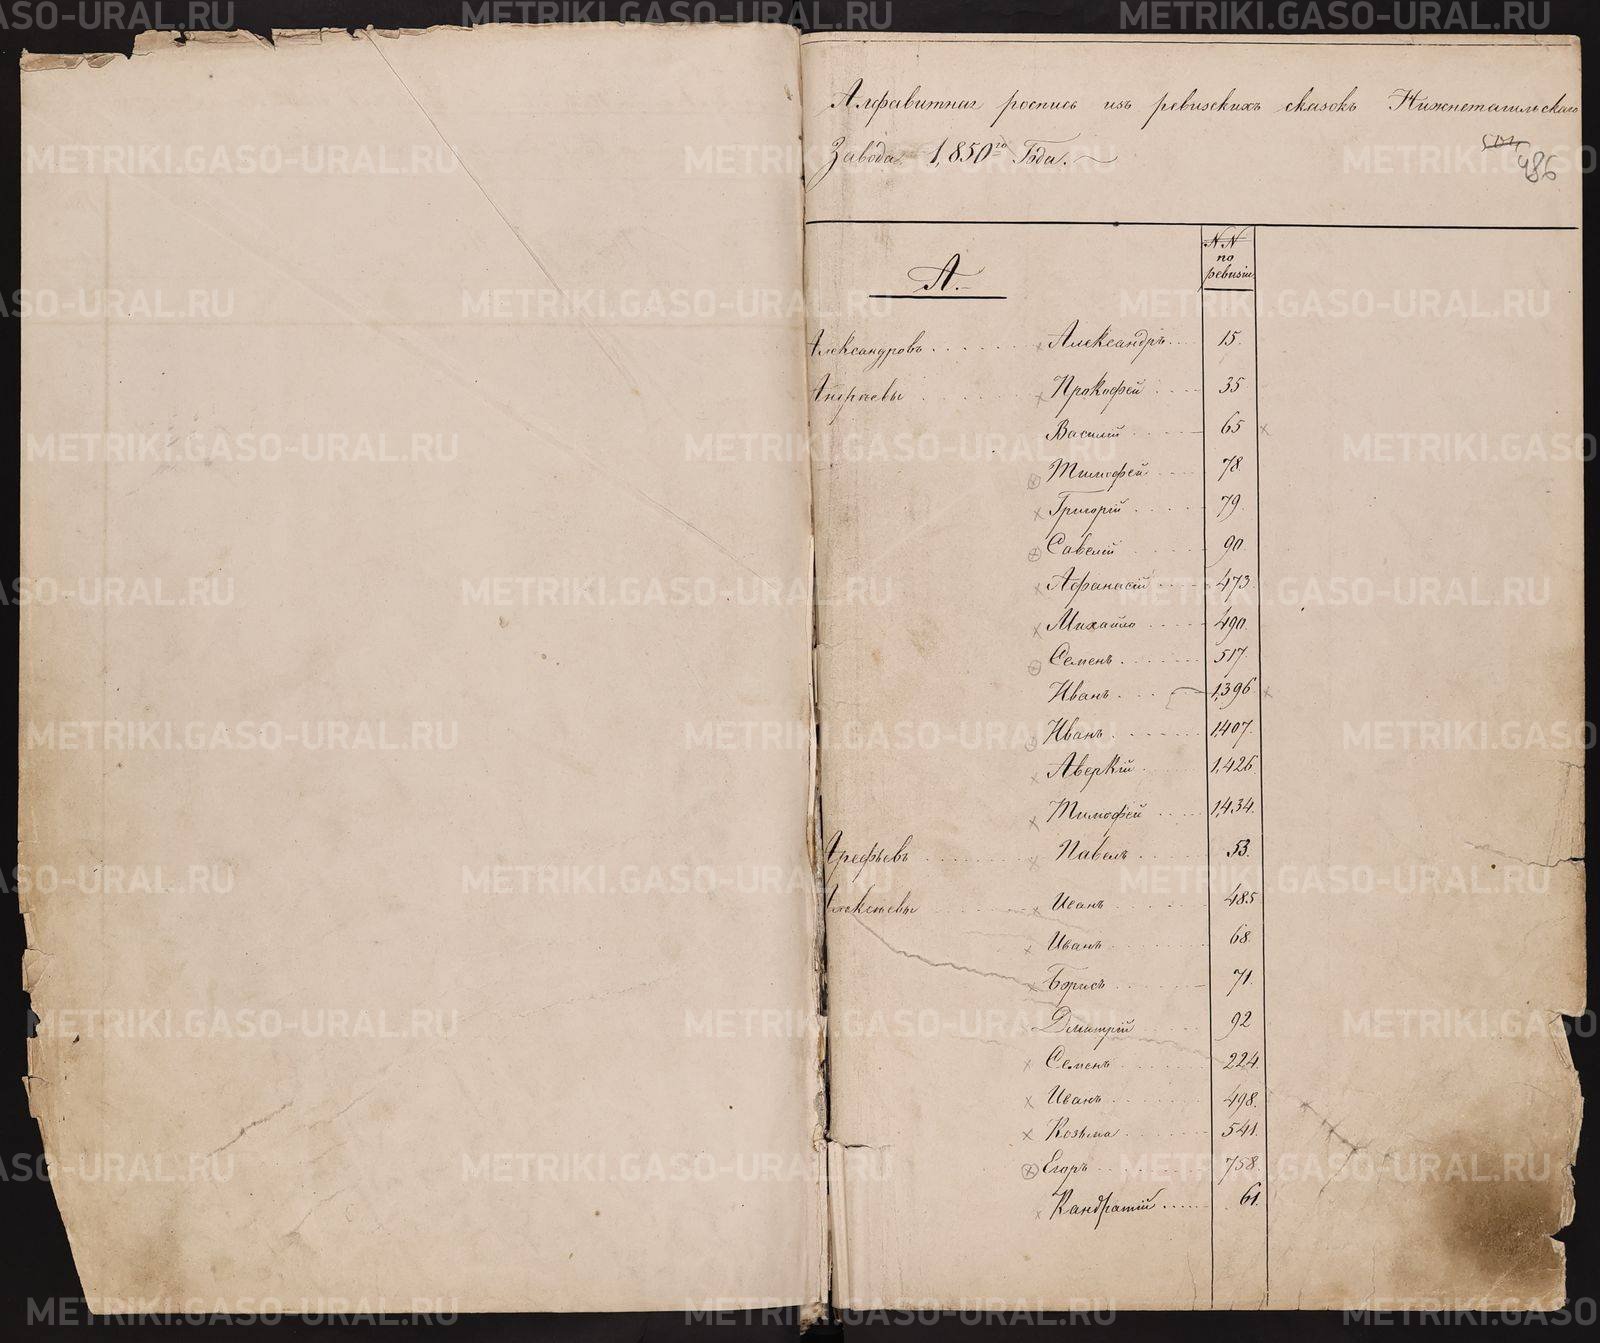 Алфавитная роспись изъ ревизскихъ сказокъ Нижнетагильскаго
Завода 1,850го Года.
486
NN
по
ревизіи
А.
Александровъ . . . . . . Александръ . . . 15.
Андреевы . . . . . . Прокофей . . . . 35
Василій . . . . . 65
Тимофей . . . . 78.
Григорій . . . . . 79.
Савелій . . . . . 90.
Афанасій . . . . 473
Михайло . . . . 490.
Семенъ . . . . . 517.
Иванъ . . . . 1,396.
Иванъ . . . . . 1,407.
Аверкій . . . . 1,426.
Тимофей . . . . 1,434.
Арефьевъ . . . . . . Павелъ . . . . 53.
Алексѣевы . . . . . . Иванъ . . . . 485
Иванъ . . . . . 68.
Борисъ . . . . . 71.
Дмитрій . . . . 92
Семенъ . . . . . 224.
Иванъ . . . . . 498.
Козьма . . . . . 541.
Егоръ . . . . . 758.
Кандратій . . . . . 61.
METRIKI.GASO-URAL.RU